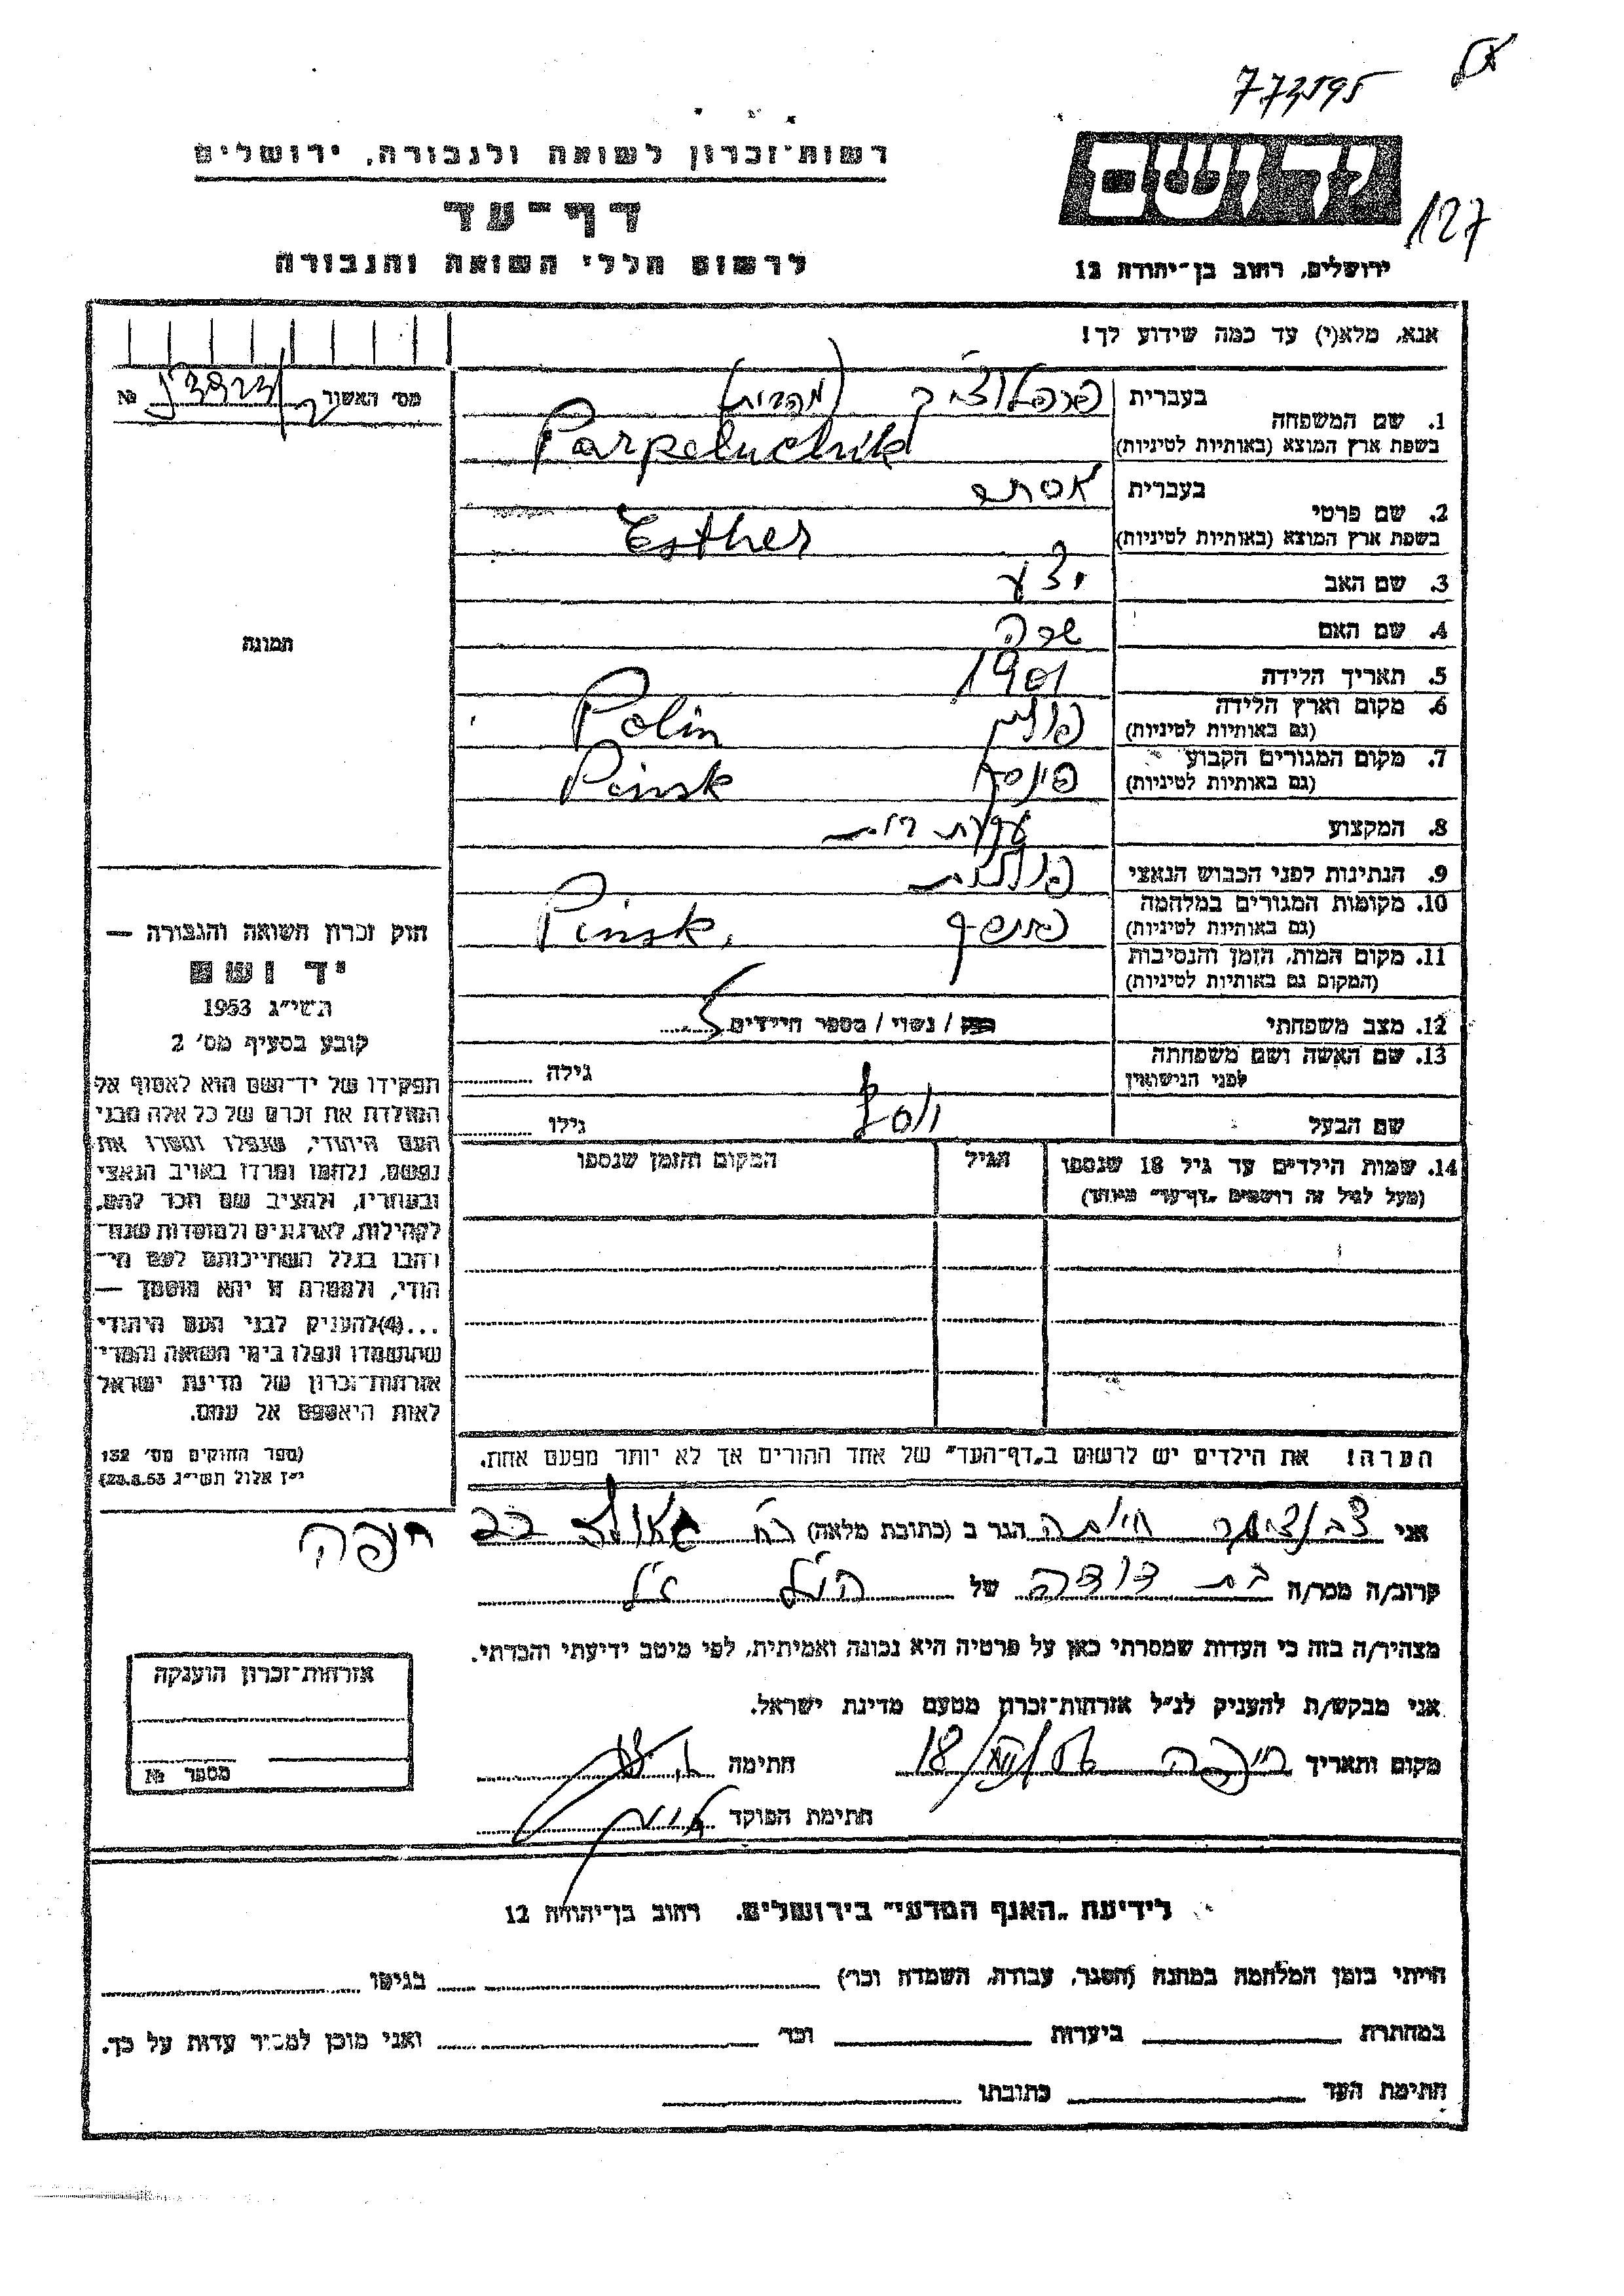 773595
רשות־זכרון לשואה ולגבורה, ירושלים
יד ושם
127
דף־עד
לרשום חללי השואה והגבורה
ירושלים, רחוב בן־יהודה 12
אנא, מלא(י) עד כמה שידוע לך!
מס' האשור №
1. שם המשפחה
בעברית
בשפת ארץ המוצא (באותיות לטיניות)
Parpeluchik
2. שם פרטי
בעברית אסתר
בשפת ארץ המוצא (באותיות לטיניות)
Esther
3. שם האב
4. שם האם שרה
5. תאריך הלידה 1901
6. מקום וארץ הלידה פולין Polin
(גם באותיות לטיניות)
7. מקום המגורים הקבוע פינסק Pinsk
(גם באותיות לטיניות)
8. המקצוע עקרת בית
9. הנתינות לפני הכבוש הנאצי פולנית
10. מקומות המגורים במלחמה פינסק Pinsk,
(גם באותיות לטיניות)
11. מקום המות, הזמן והנסיבות
(המקום גם באותיות לטיניות)
12. מצב משפחתי רווק / נשוי / מספר הילדים
13. שם האשה ושם משפחתה
לפני הנישואין
גילה
שם הבעל גילו
14. שמות הילדים עד גיל 18 שנספו הגיל המקום והזמן שנספו
(מעל לגיל זה רושמים "דף־עד" מיוחד)
הערה! את הילדים יש לרשום ב"דף־העד" של אחד ההורים אך לא יותר מפעם אחת.
תמונה
חוק זכרון השואה והגבורה —
יד ושם
תשי״ג 1953
קובע בסעיף מס' 2
תפקידו של יד־ושם הוא לאסוף אל
המולדת את זכרם של כל אלה מבני
העם היהודי, שנפלו ומסרו את
נפשם, נלחמו ומרדו באויב הנאצי
ובעוזריו, ולהציב שם וזכר להם,
לקהילות, לארגונים ולמוסדות שנח־
רבו בגלל השתייכותם לעם הי־
הודי, ולמטרת זו יהא מוסמך —
...(4)להעניק לבני העם היהודי
שהושמדו ונפלו בימי השואה והמרי
אזרחות־זכרון של מדינת ישראל
לאות היאספם אל עמם.
(ספר החוקים מס' 132
י״ז אלול תשי״ג 28.8.53)
אני חיה הגר ב (כתובת מלאה) רח' גאולה 22 חיפה
קרוב/ה מכר/ה בת דודה של הנ״ל ז״ל
מצהיר/ה בזה כי העדות שמסרתי כאן על פרטיה היא נכונה ואמיתית, לפי מיטב ידיעתי והכרתי.
אני מבקש/ת להעניק לנ״ל אזרחות־זכרון מטעם מדינת ישראל.
מקום ותאריך חיפה חתימה
חתימת הפוקד
אזרחות־זכרון הוענקה
מספר №
לידיעת "האגף המדעי" בירושלים. רחוב בן־יהודה 12
הייתי בזמן המלחמה במחנה (הסגר, עבודה, השמדה וכו') בגיטו
במחתרת ביערות וכו' ואני מוכן למסור עדות על כך.
חתימת העד כתובתו